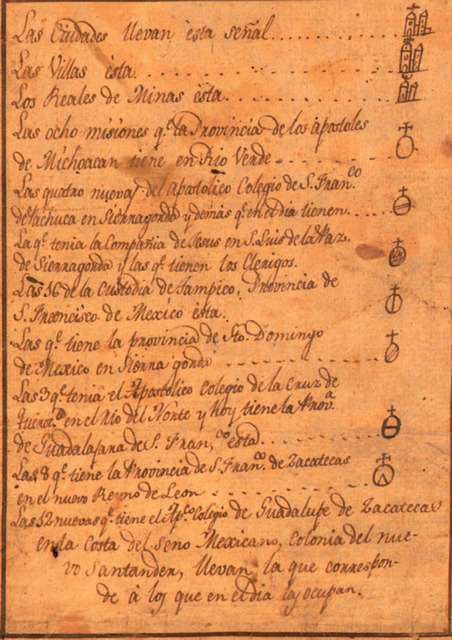 Las Ciudades llevan esta señal
Las Villas esta
Los Reales de Minas esta
Las ocho misiones q.e la Provincia de los apostoles
de Michoacan tiene en Rio Verde
Las quatro nuevas del Apostolico Colegio de S. Fran.co
de Pachuca en Sierragorda y demás q.e en el dia tienen
La q.e tenia la Compañia de Jesus en S. Luis de la Paz
de Sierragorda y las q.e tienen los Clerigos.
Las 16 de la Custodia de Tampico, Provincia de
S. Francisco de Mexico esta.
Las q.e tiene la provincia de Sto. Domingo
de Mexico en Sierra gorda
Las 3 q.e tenia el Apostolico Colegio de la Cruz de
en el Rio del Norte y hoy tiene la Prov.a
de Guadalaxara de S. Fran,co esta
Las 8 q.e tiene la Provincia de S. Fran.co de Zacatecas
en el nuevo Reyno de Leon
Las 12 nuevas q.e tiene el Ap.co Colegio de Guadalupe de Zacatecas
en la Costa del Seno Mexicano, Colonia del nue-
vo Santander, llevan la que correspon-
de à los que en el dia las ocupan.